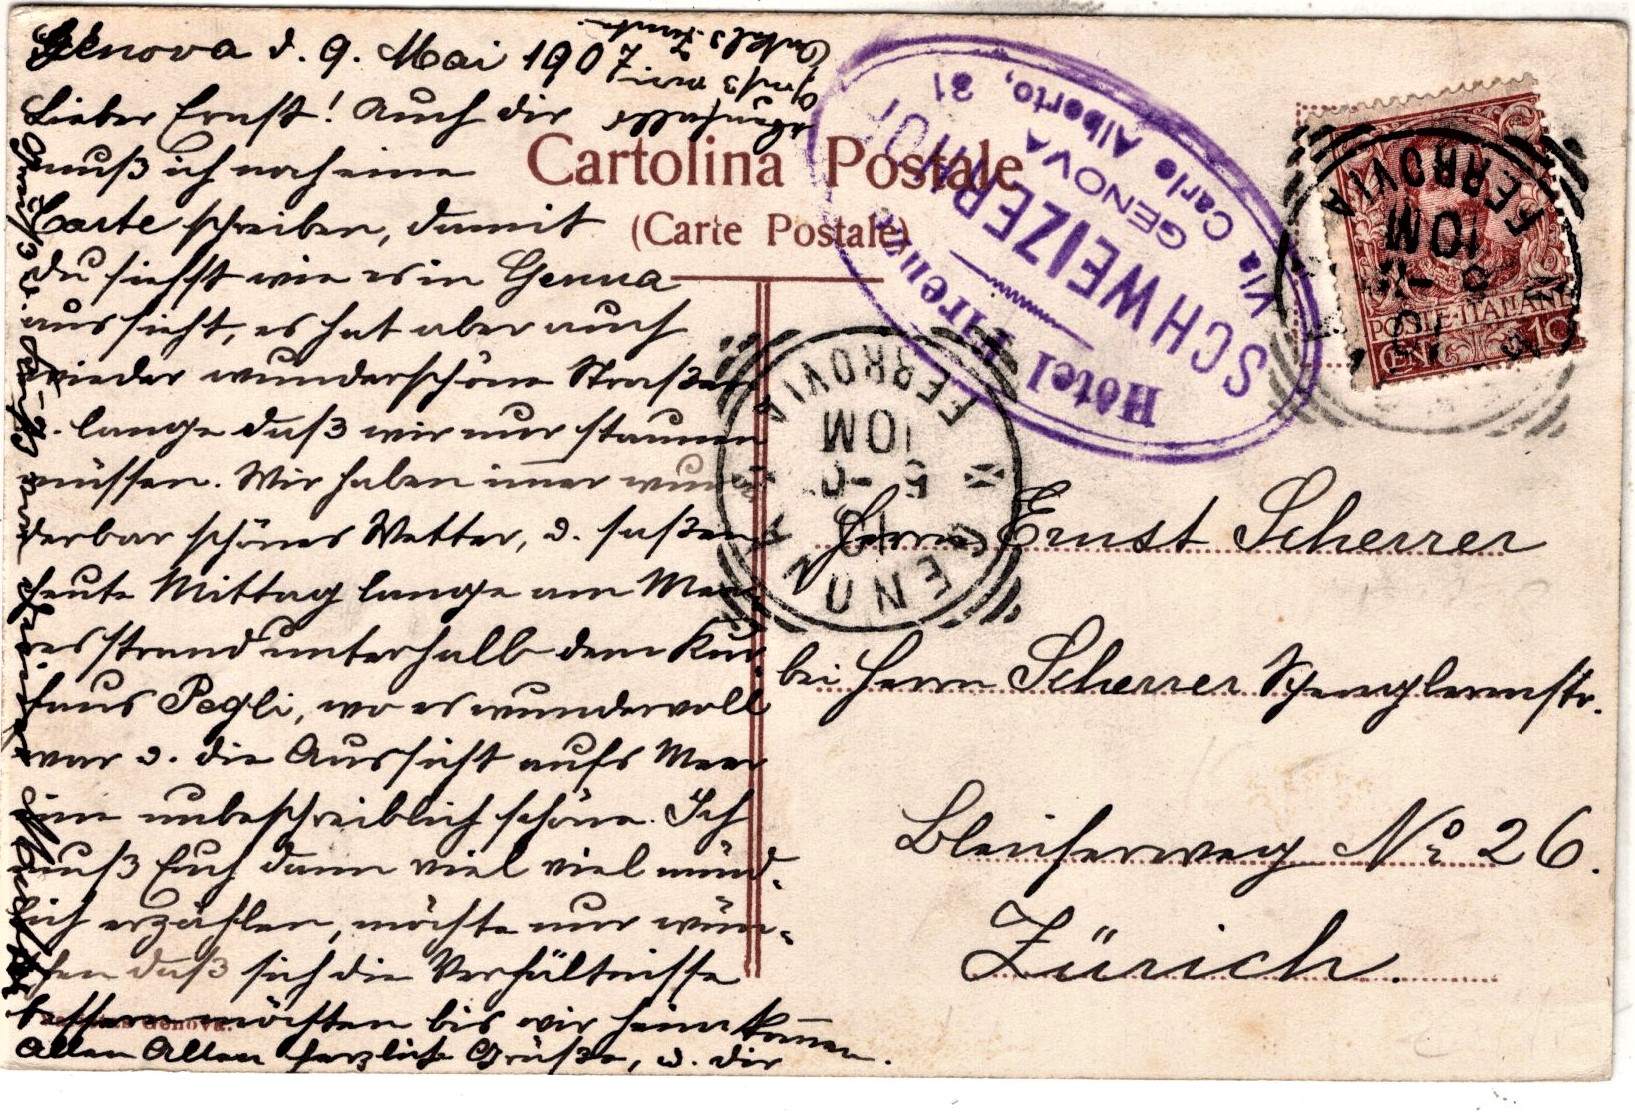 Genova d. 9. Mai 1907
Lieber Ernst! Auch dir
muß ich noch eine
Carte schreiben, damit
du siehst wie es in Genua
aussieht, es hat aber auch
wieder wunderschöne Straßen
lange daß wir nur staunen
müssen. Wir haben imer wun
derbar schönes Wetter, u. saßen
heute Mittag lange am Meer
esstrand unterhalb dem Kur
haus Pegli, wo es wundervoll
war u. die Aussicht aufs Meer
eine unbeschreiblich schöne. Ich
muß Euch dann viel viel münd-
lich erzählen, möchte nur wün-
schen daß sich die Verhältnisse
bessern möchten bis wir heim kommen.
Allen Allen herzliche Grüße, u. dir
Gruß v.
Cartolina Postale
(Carte Postale)
Hôtel Firenze
SCHWEIZERHOF
GENOVA
Via Carlo Alberto, 31
GENOVA
FERROVIA
10M
FERROVIA
10M
POSTE·ITALIANE
CENT 10
Herrn Ernst Scherrer
bei Herrn Scherrer Spenglermstr.
Bleicherweg No 26.
Zürich.
Genova.